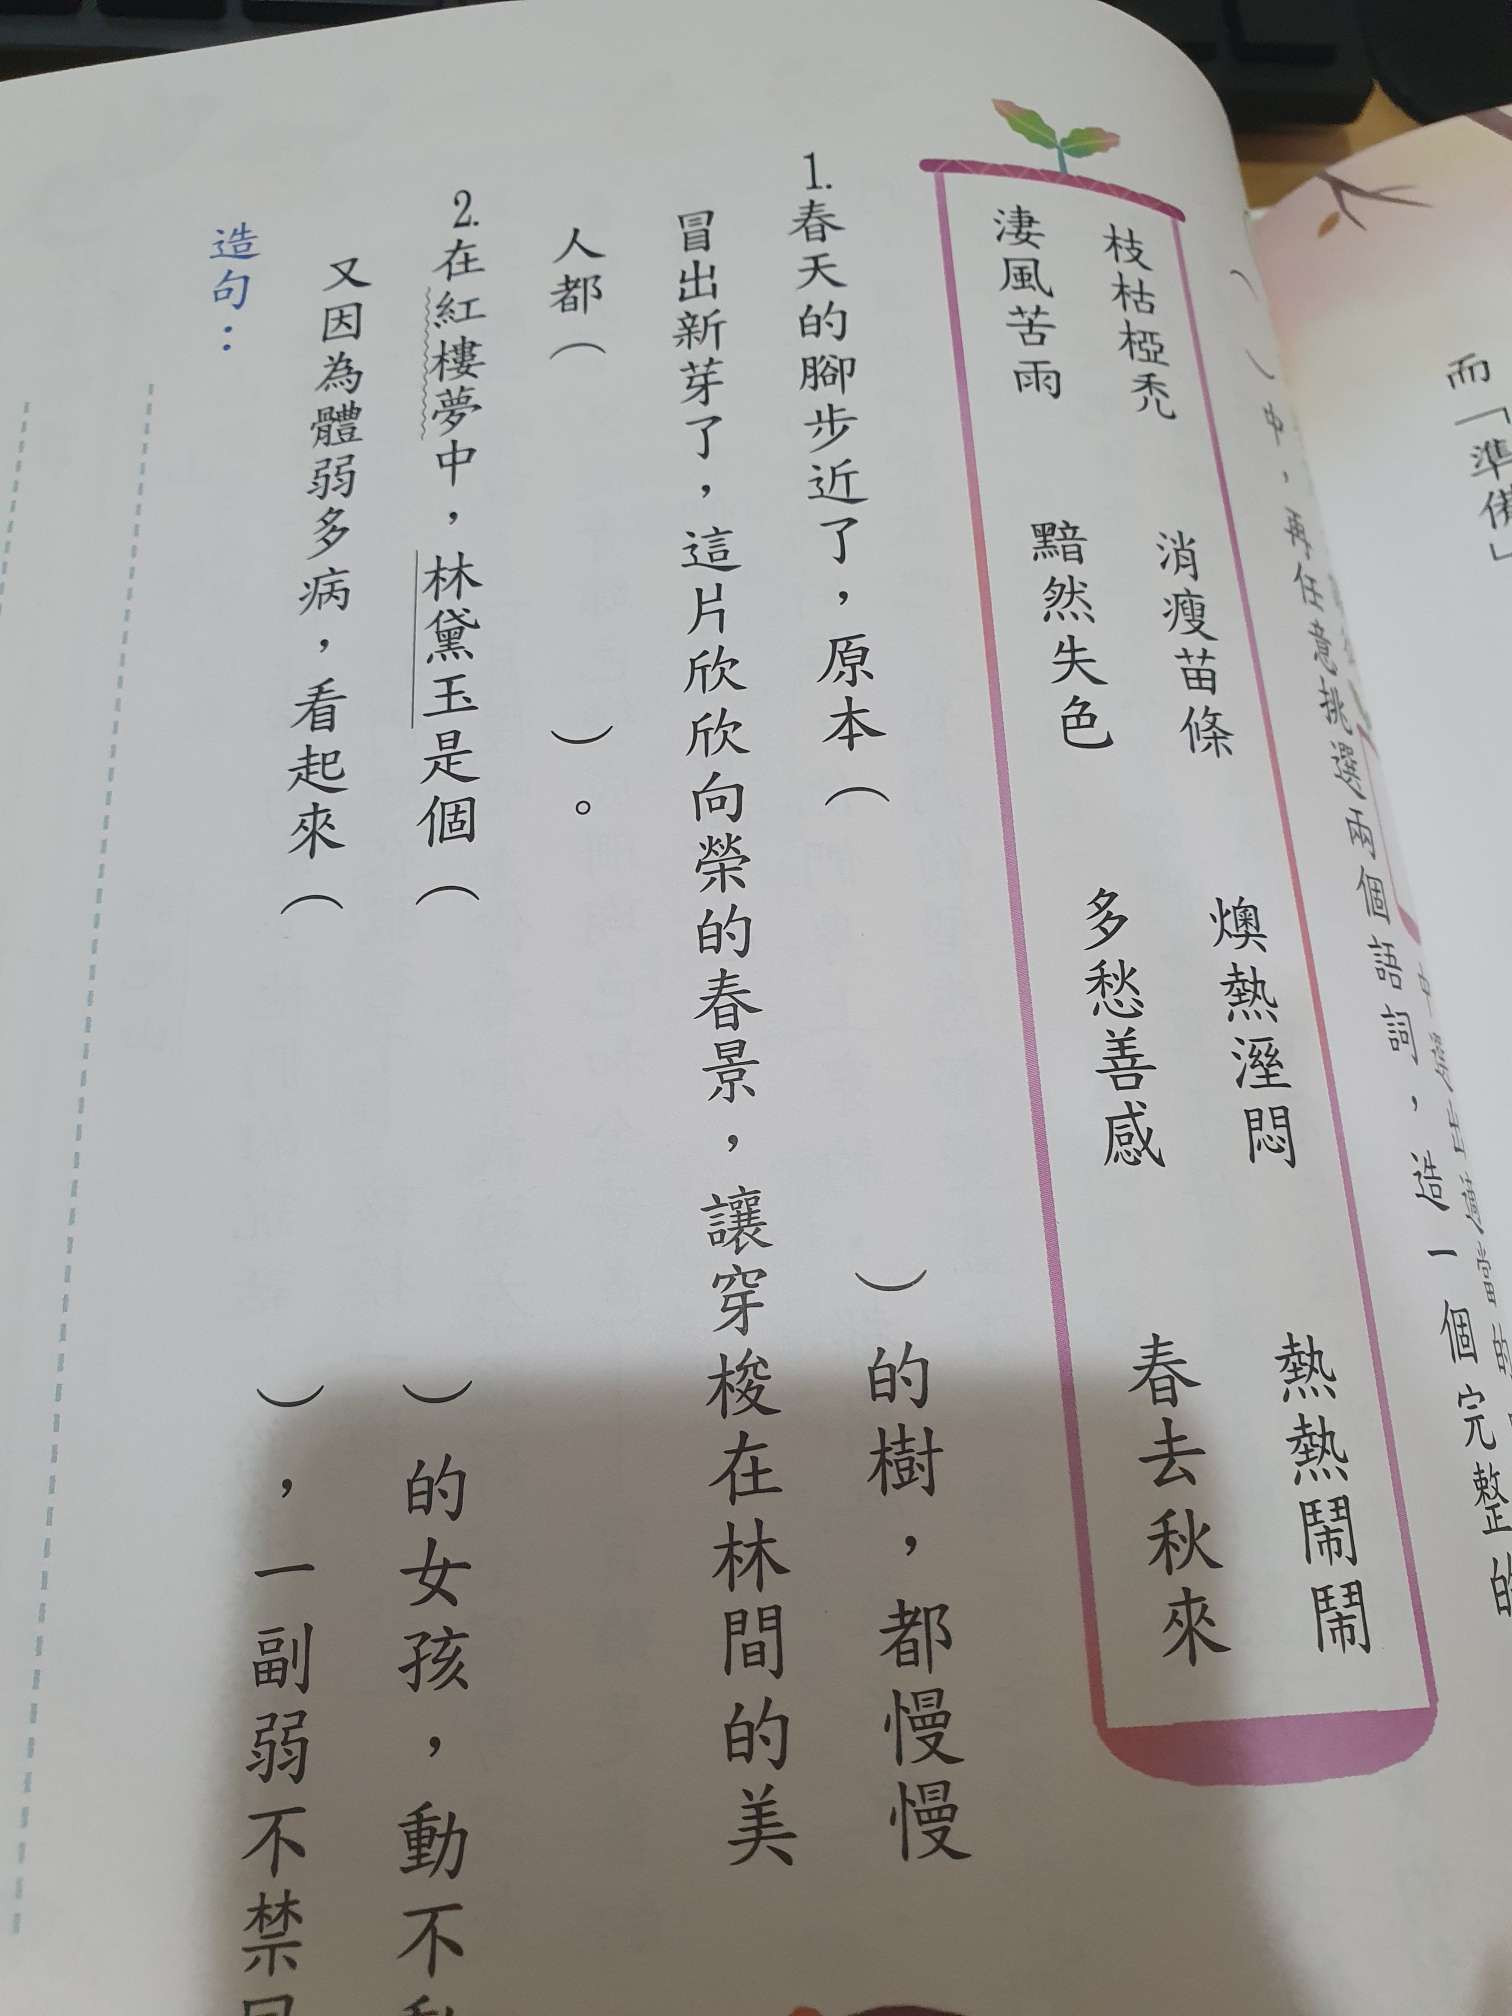 而「準備」
（ ）中，再任意挑選兩個語詞，造一個完整的
枝枯椏禿 消瘦苗條 燠熱溼悶 熱熱鬧鬧
淒風苦雨 黯然失色 多愁善感 春去秋來
1.春天的腳步近了，原本（ ）的樹，都慢慢
冒出新芽了，這片欣欣向榮的春景，讓穿梭在林間的美
人都（ ）。
2.在紅樓夢中，林黛玉是個（ ）的女孩，動不
又因為體弱多病，看起來（ ），一副弱不禁
造句：